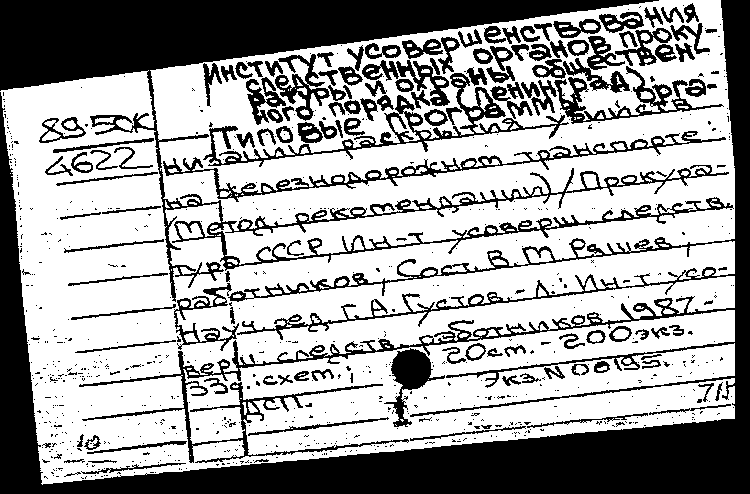 Институт усовершенствования
следственных органов проку-
ратуры и охраны обществен-
ного порядка (Ленинград).
Типовые программы орга-
89-5СК
4622
низации раскрытия убийств
на железнодорожном транспорте:
(Метод. рекомендации) / Прокура-
тура СССР, Ин-т усоверш. следств.
работников; Сост. В. М. Ряшев;
Науч. ред. Г. А. Густов. - Л.: Ин-т усо-
верш. следств. работников, 1987. -
33 с.: схем.; 20 см. - 200 экз.
ДСП. Экз. N 00195.
10